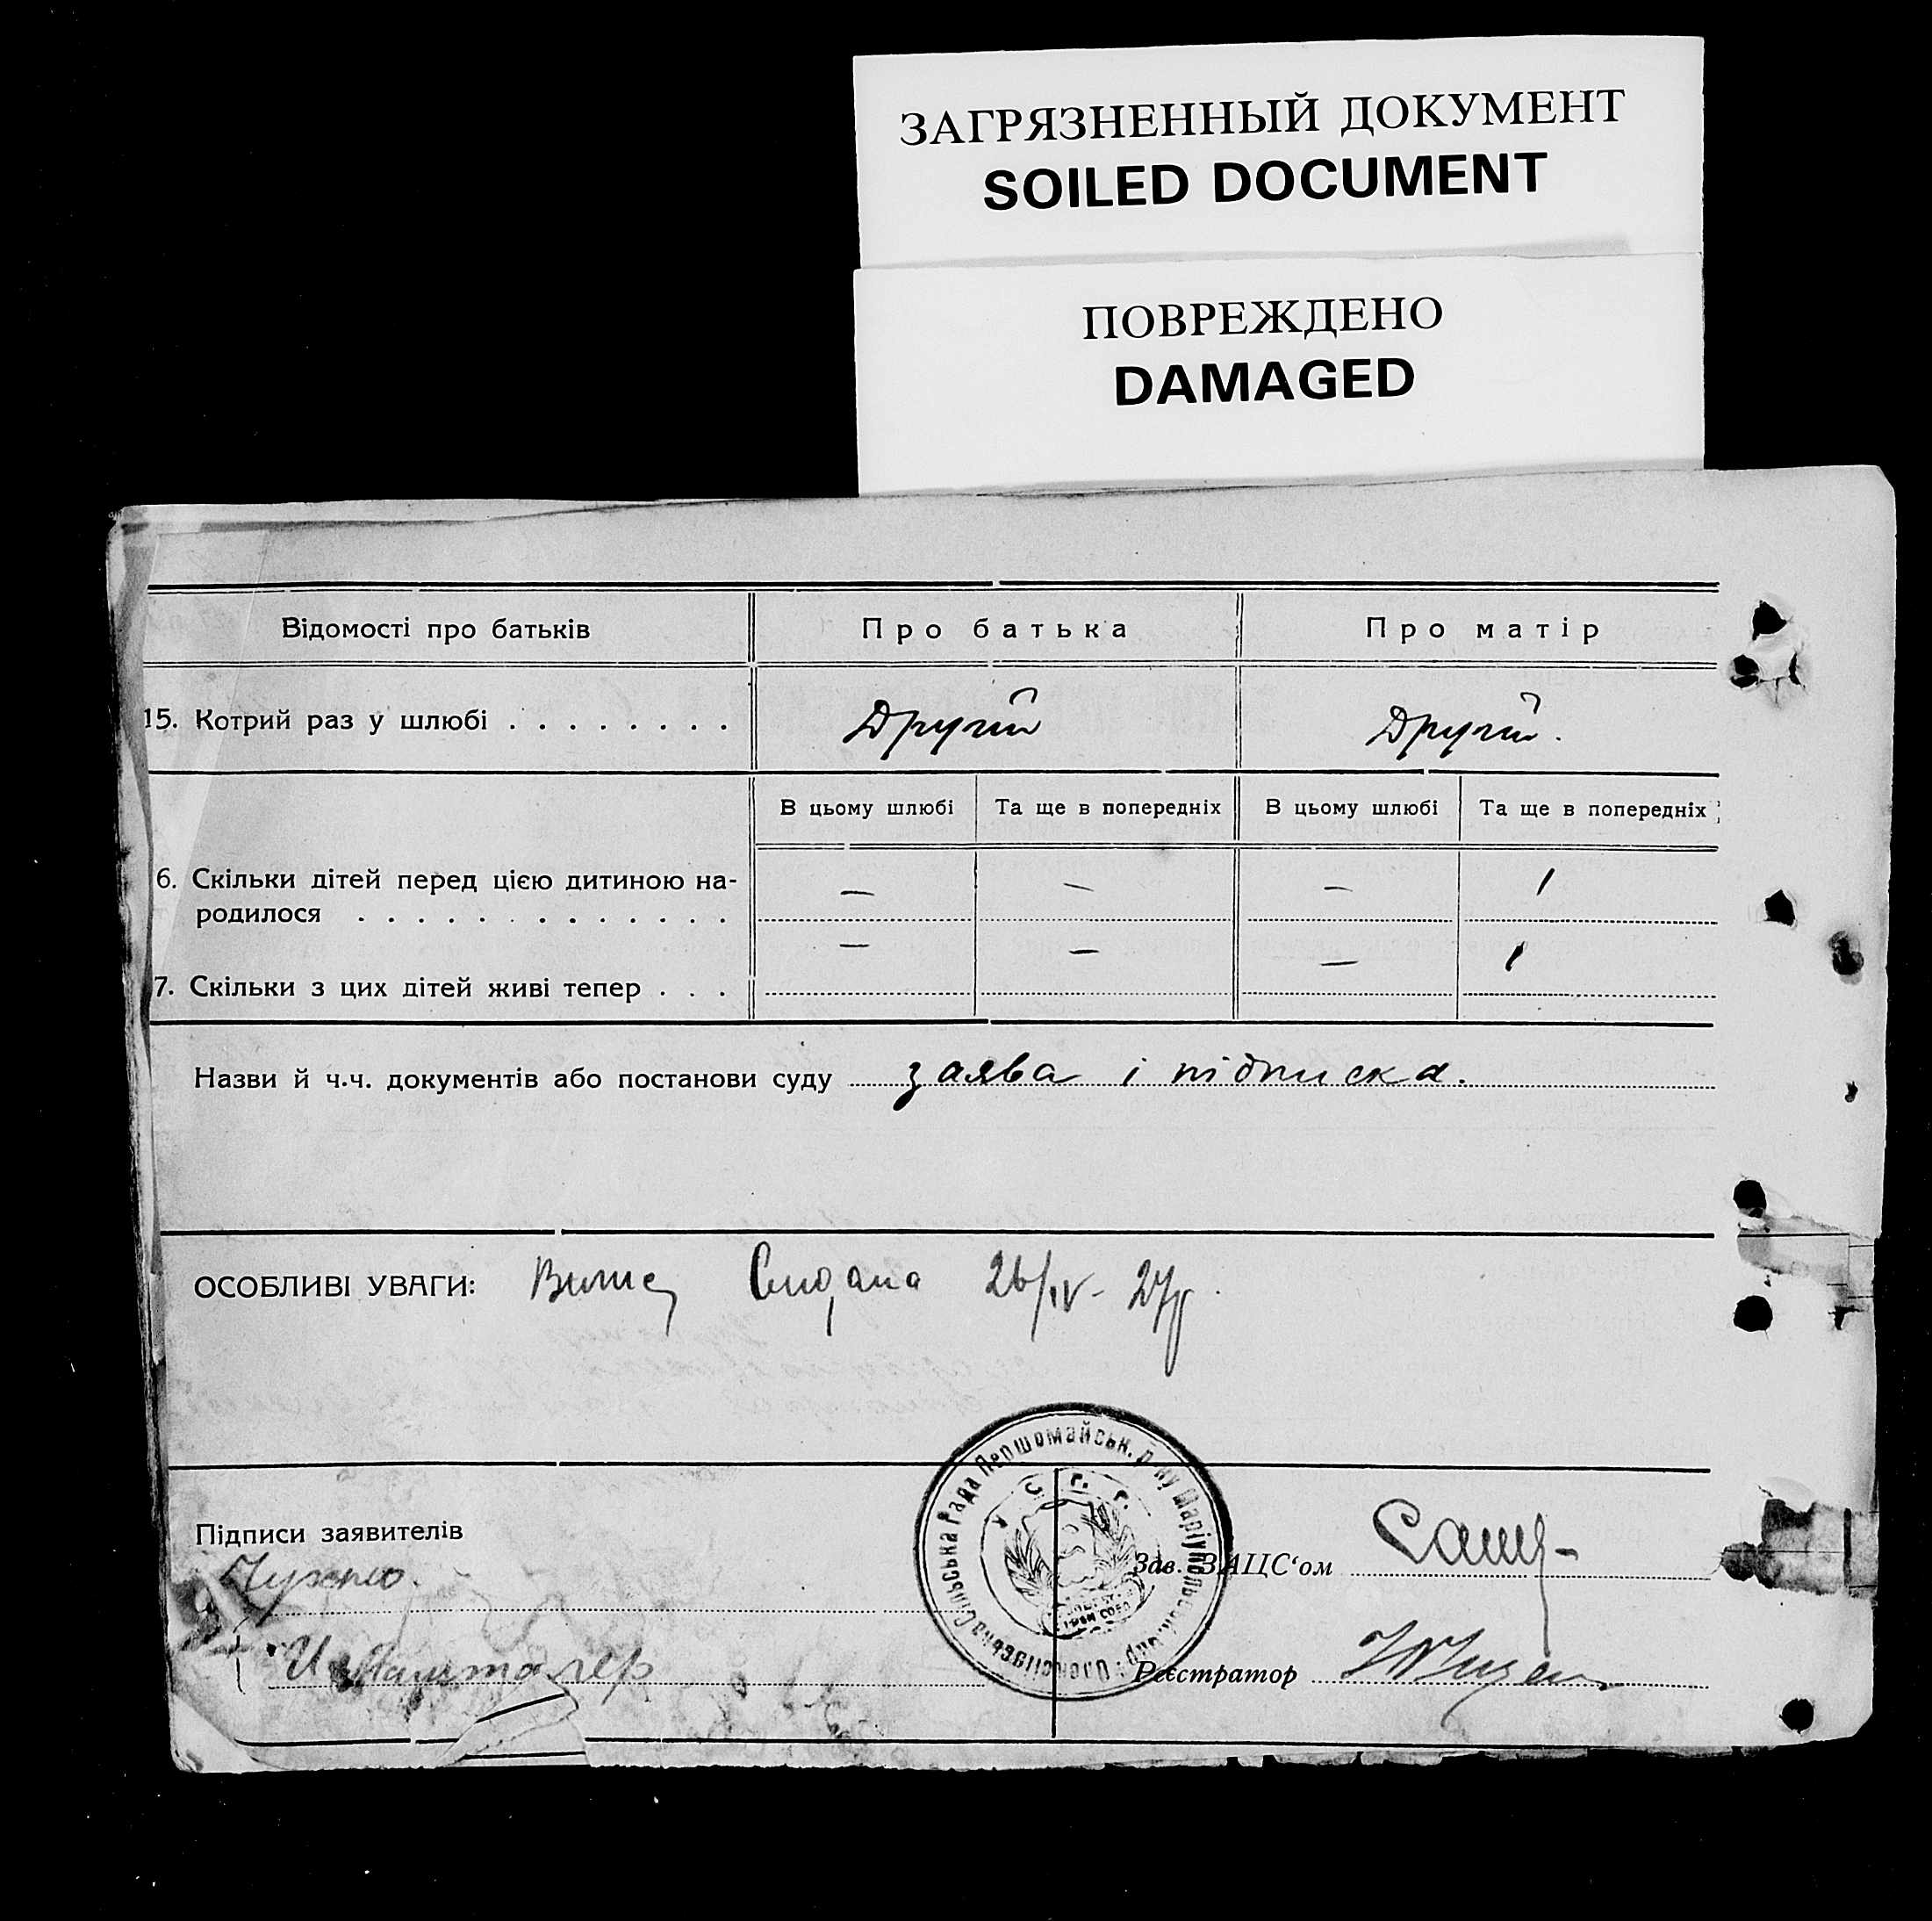 ЗАГРЯЗНЕННЫЙ ДОКУМЕНТ
SOILED DOCUMENT
ПОВРЕЖДЕНО
DAMAGED
Відомості про батьків Про батька Про матір
15. Котрий раз у шлюбі . . . . . . . . Другій Другій.
В цьому шлюбі Та ще в попередніх В цьому шлюбі Та ще в попередніх
6. Скільки дітей перед цією дитиною на- — — — 1
родилося . . . . . . . . . . . . .
7. Скільки з цих дітей живі тепер . . . — — — 1
Назви й ч.ч. документів або постанови суду заява і підписка.
ОСОБЛИВІ УВАГИ: 26/IV- 27р.
Підписи заявителів
Зав. ЗАЦС‘ом
Реєстратор
Сільська Рада Першомайськ. р-ну Маріупольськ. окр.